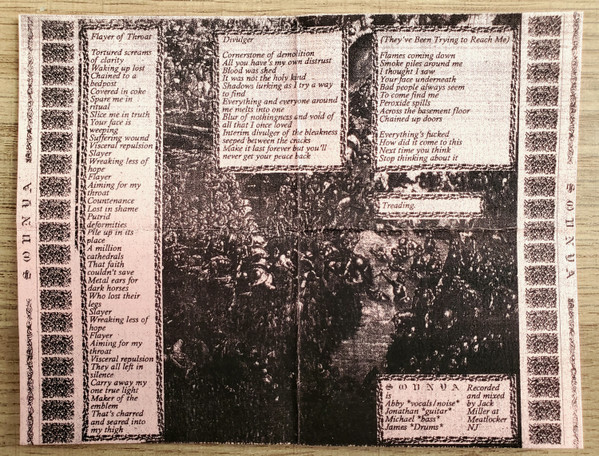 SOUNYA
Flayer of Throat
Tortured screams
of clarity
Waking up lost
Chained to a
bedpost
Covered in coke
Spare me in
ritual
Slice me in truth
Your face is
weeping
Suffering wound
Visceral repulsion
Slayer
Wreaking less of
hope
Flayer
Aiming for my
throat
Countenance
Lost in shame
Putrid
deformities
Pile up in its
place
A million
cathedrals
That faith
couldn't save
Metal ears for
dark horses
Who lost their
legs
Slayer
Wreaking less of
hope
Flayer
Aiming for my
throat
Visceral repulsion
They all left in
silence
Carry away my
one true light
Maker of the
emblem
That's charred
and seared into
my thigh
Divulger
Cornerstone of demolition
All you have's my own distrust
Blood was shed
It was not the holy kind
Shadows lurking as I try a way
to find
Everything and everyone around
me melts into one
Blur of nothingness and void of
all that I once loved
Interim divulger of the bleakness
seeped between the cracks
Make it last forever but you'll
never get your peace back
(They've Been Trying to Reach Me)
Flames coming down
Smoke piles around me
I thought I saw
Your face underneath
Bad people always seem
To come find me
Peroxide spills
Across the basement floor
Chained up doors
Everything's fucked
How did it come to this
Next time you think
Stop thinking about it
Treading.
SOUNYA
is
Abby *vocals/noise*
Jonathan *guitar*
Michael *bass*
James *Drums*
Recorded
and mixed
by Jack
Miller at
Meatlocker
NJ
SOUNYA